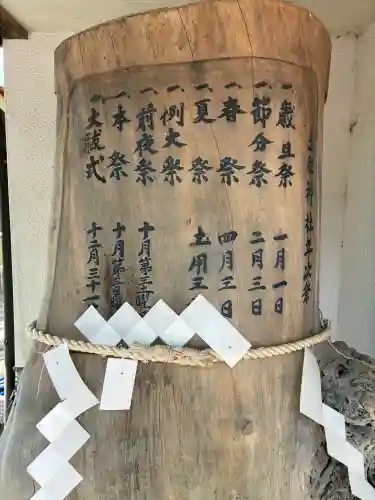 神社年次祭
一、歳旦祭 一月一日
一、節分祭 二月三日
一、春祭 四月三日
一、夏祭 土用三
一、例大祭
一、前夜祭 十月第三
一、本祭 十月第三日
一、大祓式 十二月三十一